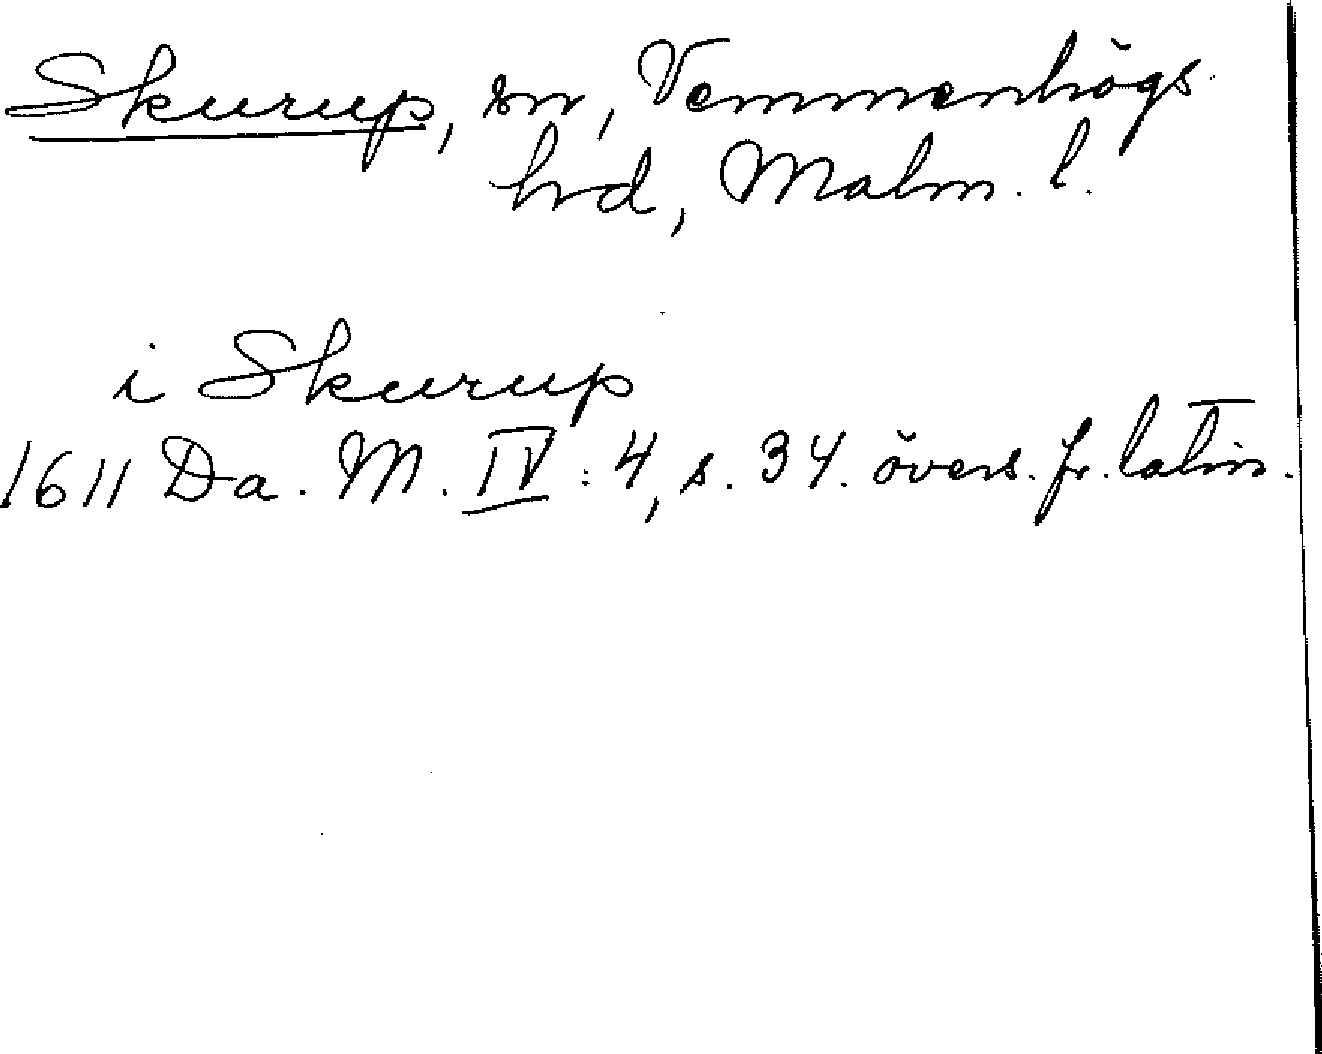 Skurup, sn, Vemmenhögs
hrd, Malm. l.
i Skurup
1611 Da. M. IV : 4, s. 34. övers. fr. latin.